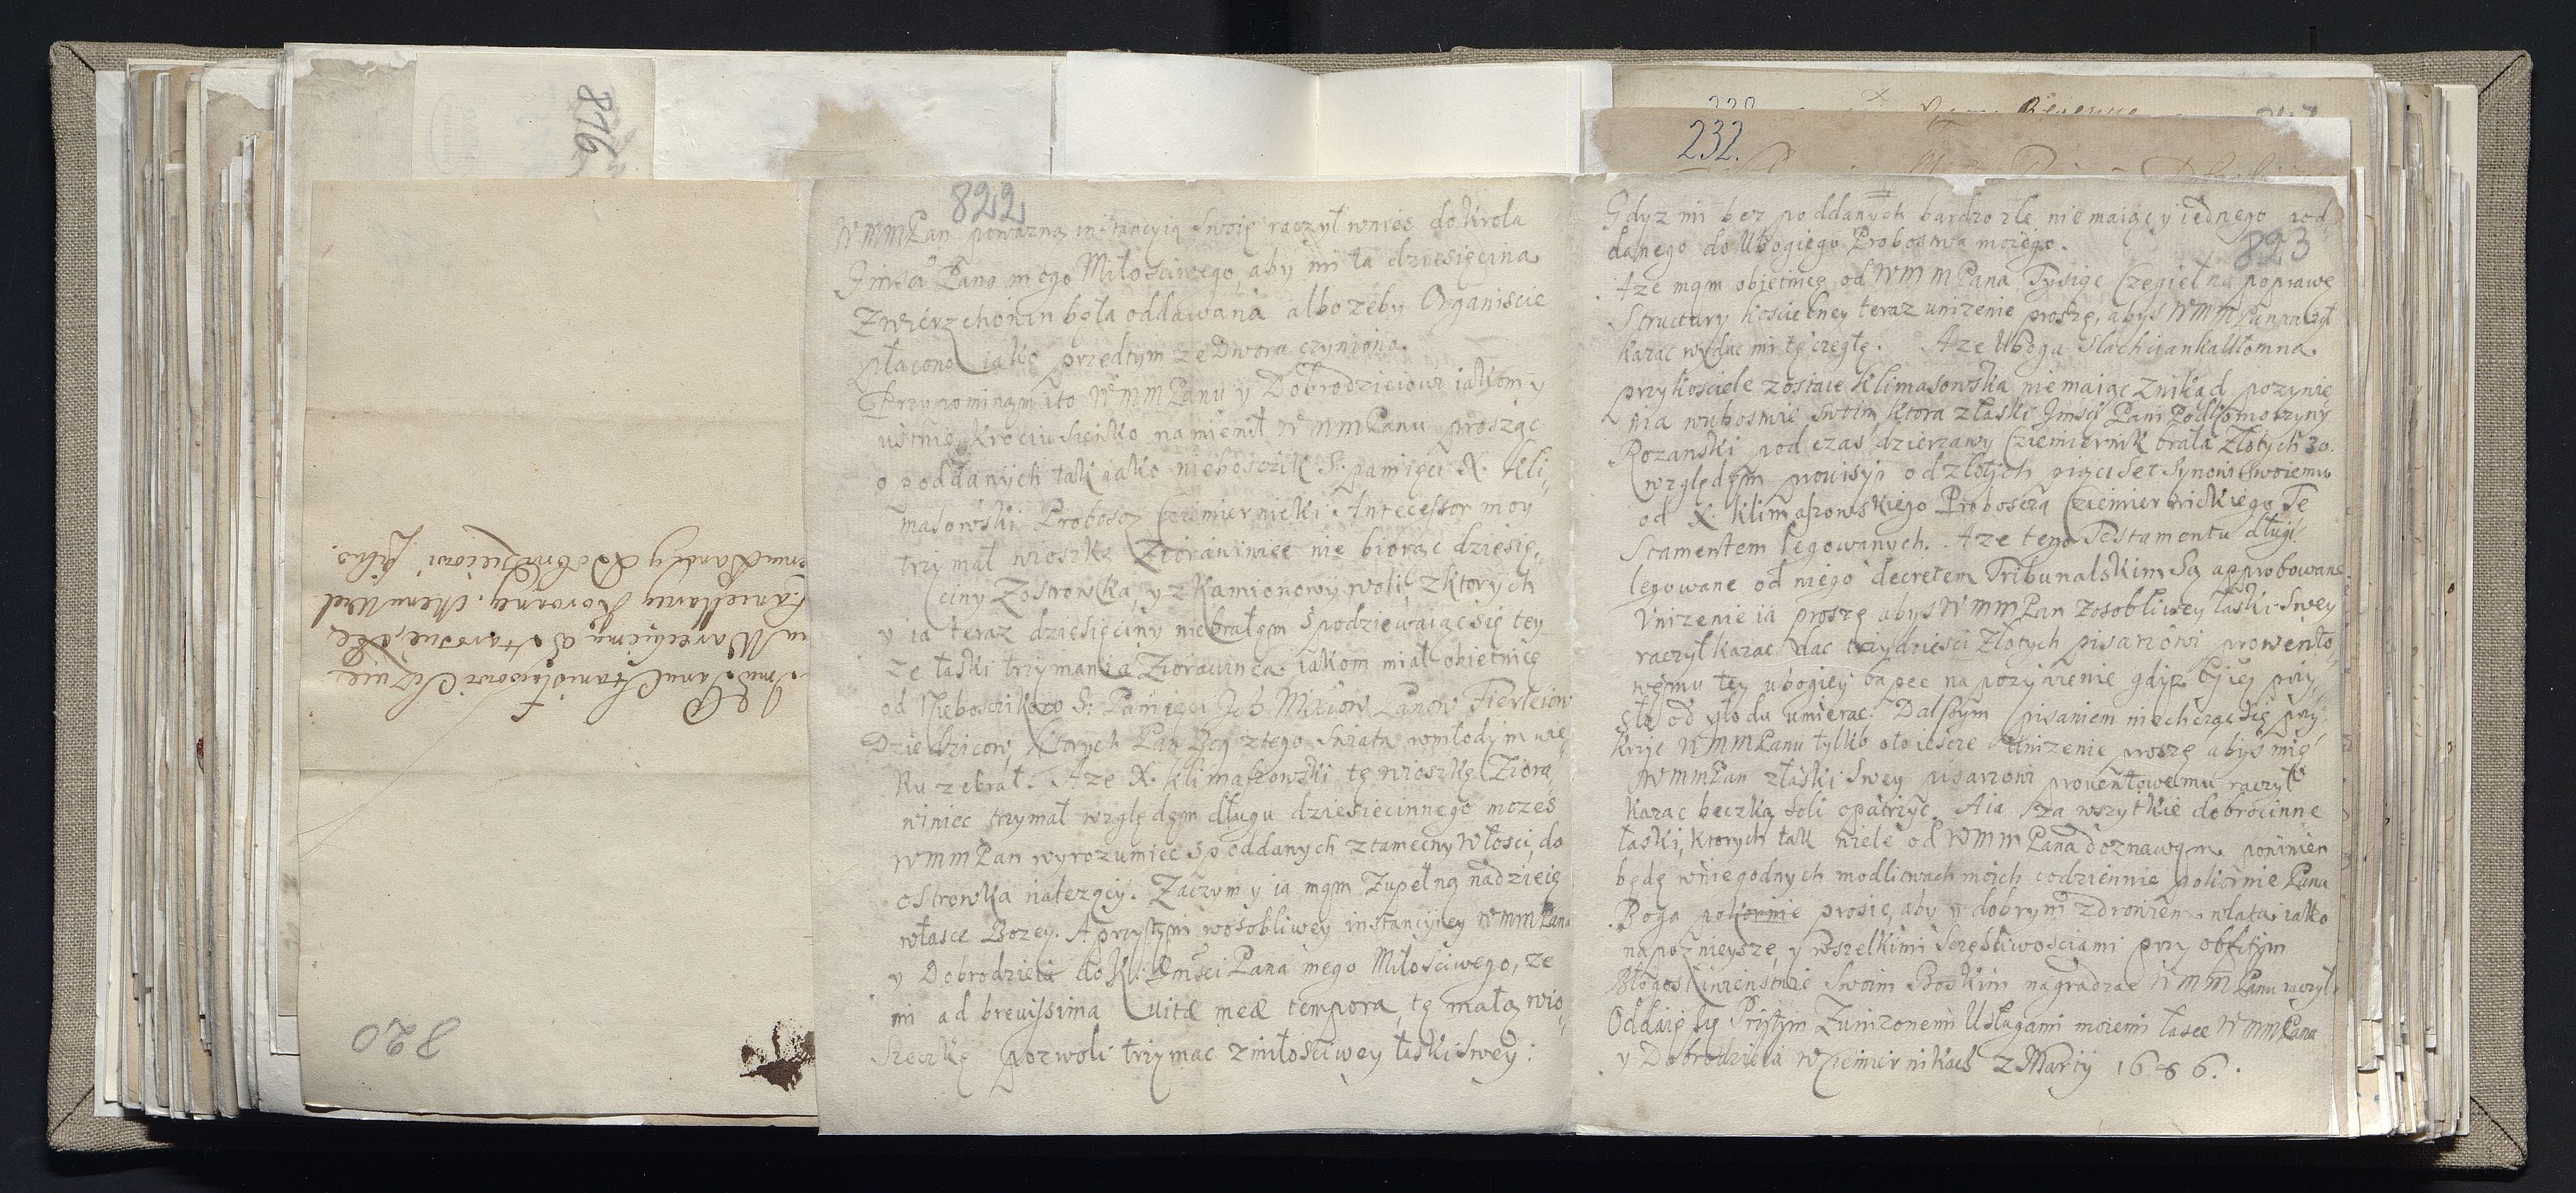 876
820
822
WMMPan powazną instancyią swoię raczył wnieś do Krola
Jmści Pana mego Miłościwego, aby mi ta dziesięcina
Zwierzchonin beła oddawana albo zeby Organiscie
płacono iako przedtym ze Dwora czyniono.
Przypominam ito WMMPanu y Dobrodzieiowi iakom y
ustnie krociusieńko namienił WMMPanu prosząc
o poddanych tak iako nieboszczik S. pamięci X. Kli,,
masowski Proboszcz Czemiernicki Antecessor moy
trzymał wioszkę Ziorawiniec nie biorąc dziesię,,
ciny Zostrowka, y zkamionowy woli, zktorych
y ia teraz dziesięciny niebrałęm spodziewaiąc się tey
ze łaski trzymania Ziorawinca. iakom miał obietnicę
od Nieboszczikow S. Pamięci Ich Mściow Panow Firleiow
Dziedzicow, ktorych Pan Bog ztego swiata wmłodym wie,,
ku zebrał. Aze X. Klimaszowski tę wioszkę Ziora,,
winiec trzymał względęm długu dziesiecinnego mozes
WMMPan wyrozumiec spoddanych ztamecny włosci, do
ostrowka nalezący. Zaczym y ia mąm Zupełną nadzieię
własce Bozey. A przytym wosobliwey instancyiey WMMPana
y Dobrodzieia do K: Jmści Pana mego Miłościwego, ze
mi ad brevissima vitæ meæ tempora, tę małą wio,,
szeczkę pozwoli trzymac zmiłosciwey łaski swey:
232.
823
Gdyz mi bez poddanych bardzo zle niemaiąc y iednego pod,,
danego do Ubogiego Probostwa moiego.
Aze mąm obietnicę od WMMPana Tysiąc Czegieł na poprawę
Structury koscielney teraz unizenie proszę, abyś WMMPan raczył
kazac wydac mi tę cegłę. Aze Uboga Slachcianka Ułomna
przykosciele zostaie Klimasowska niemaiąc znikąd pozywię,,
nia wubostwie swoim, ktora złaski Jmści Pani Podkomorzyny
Rozanski podczas dzierzawy Czemiernik brała Złotych 30.
względęm prouisyi od złotych pięciset synowi swoiemu
od X. Klimaszowskiego Proboscza Czemiernickiego Te
stamentem legowanych. Aze tego Testamentu długi
legowane od niego decretem Tribunalskim Są approbowane
Unizenie ia proszę abyś WMMPan zosobliwey łaski swey
raczył kazac dac trzydziesci Złotych pisarzowi prowento,,
wemu tey ubogiey babce na pozywienie gdyz byiey przy,,
szło od głodu umierac. Dalszym pisaniem niechcząc się przy,,
krzyc WMMPanu tylko oto iescze unizenie proszę abyś mię
WMMPan złaski swey pisarzowi prouentowemu raczył
kazac beczką soli opatrzyc. A ia za wszytkie dobroczinne
łaski, ktorych tak wiele od WMMPana doznawąm powinien
będę wniegodnych modlitwach moich codziennie pokornie Pana
Boga pokornie prosic, aby y dobrym zdrowiem wlata iako
napoznieysze, y wszelkimi sczęsliwosciami przy obfitym
Błogosławienstwie swoim Boskim nagradzac WMMPanu raczył.
Oddaię się Przytym Zunizonemi Usługami moiemi łasce WMMPana
y Dobrodzieia w Czemiernikach 2 Martij 1686.